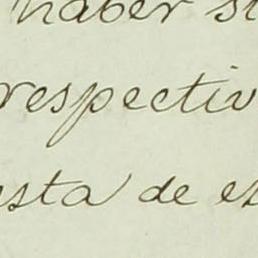 haber si
respectiv
esta de es